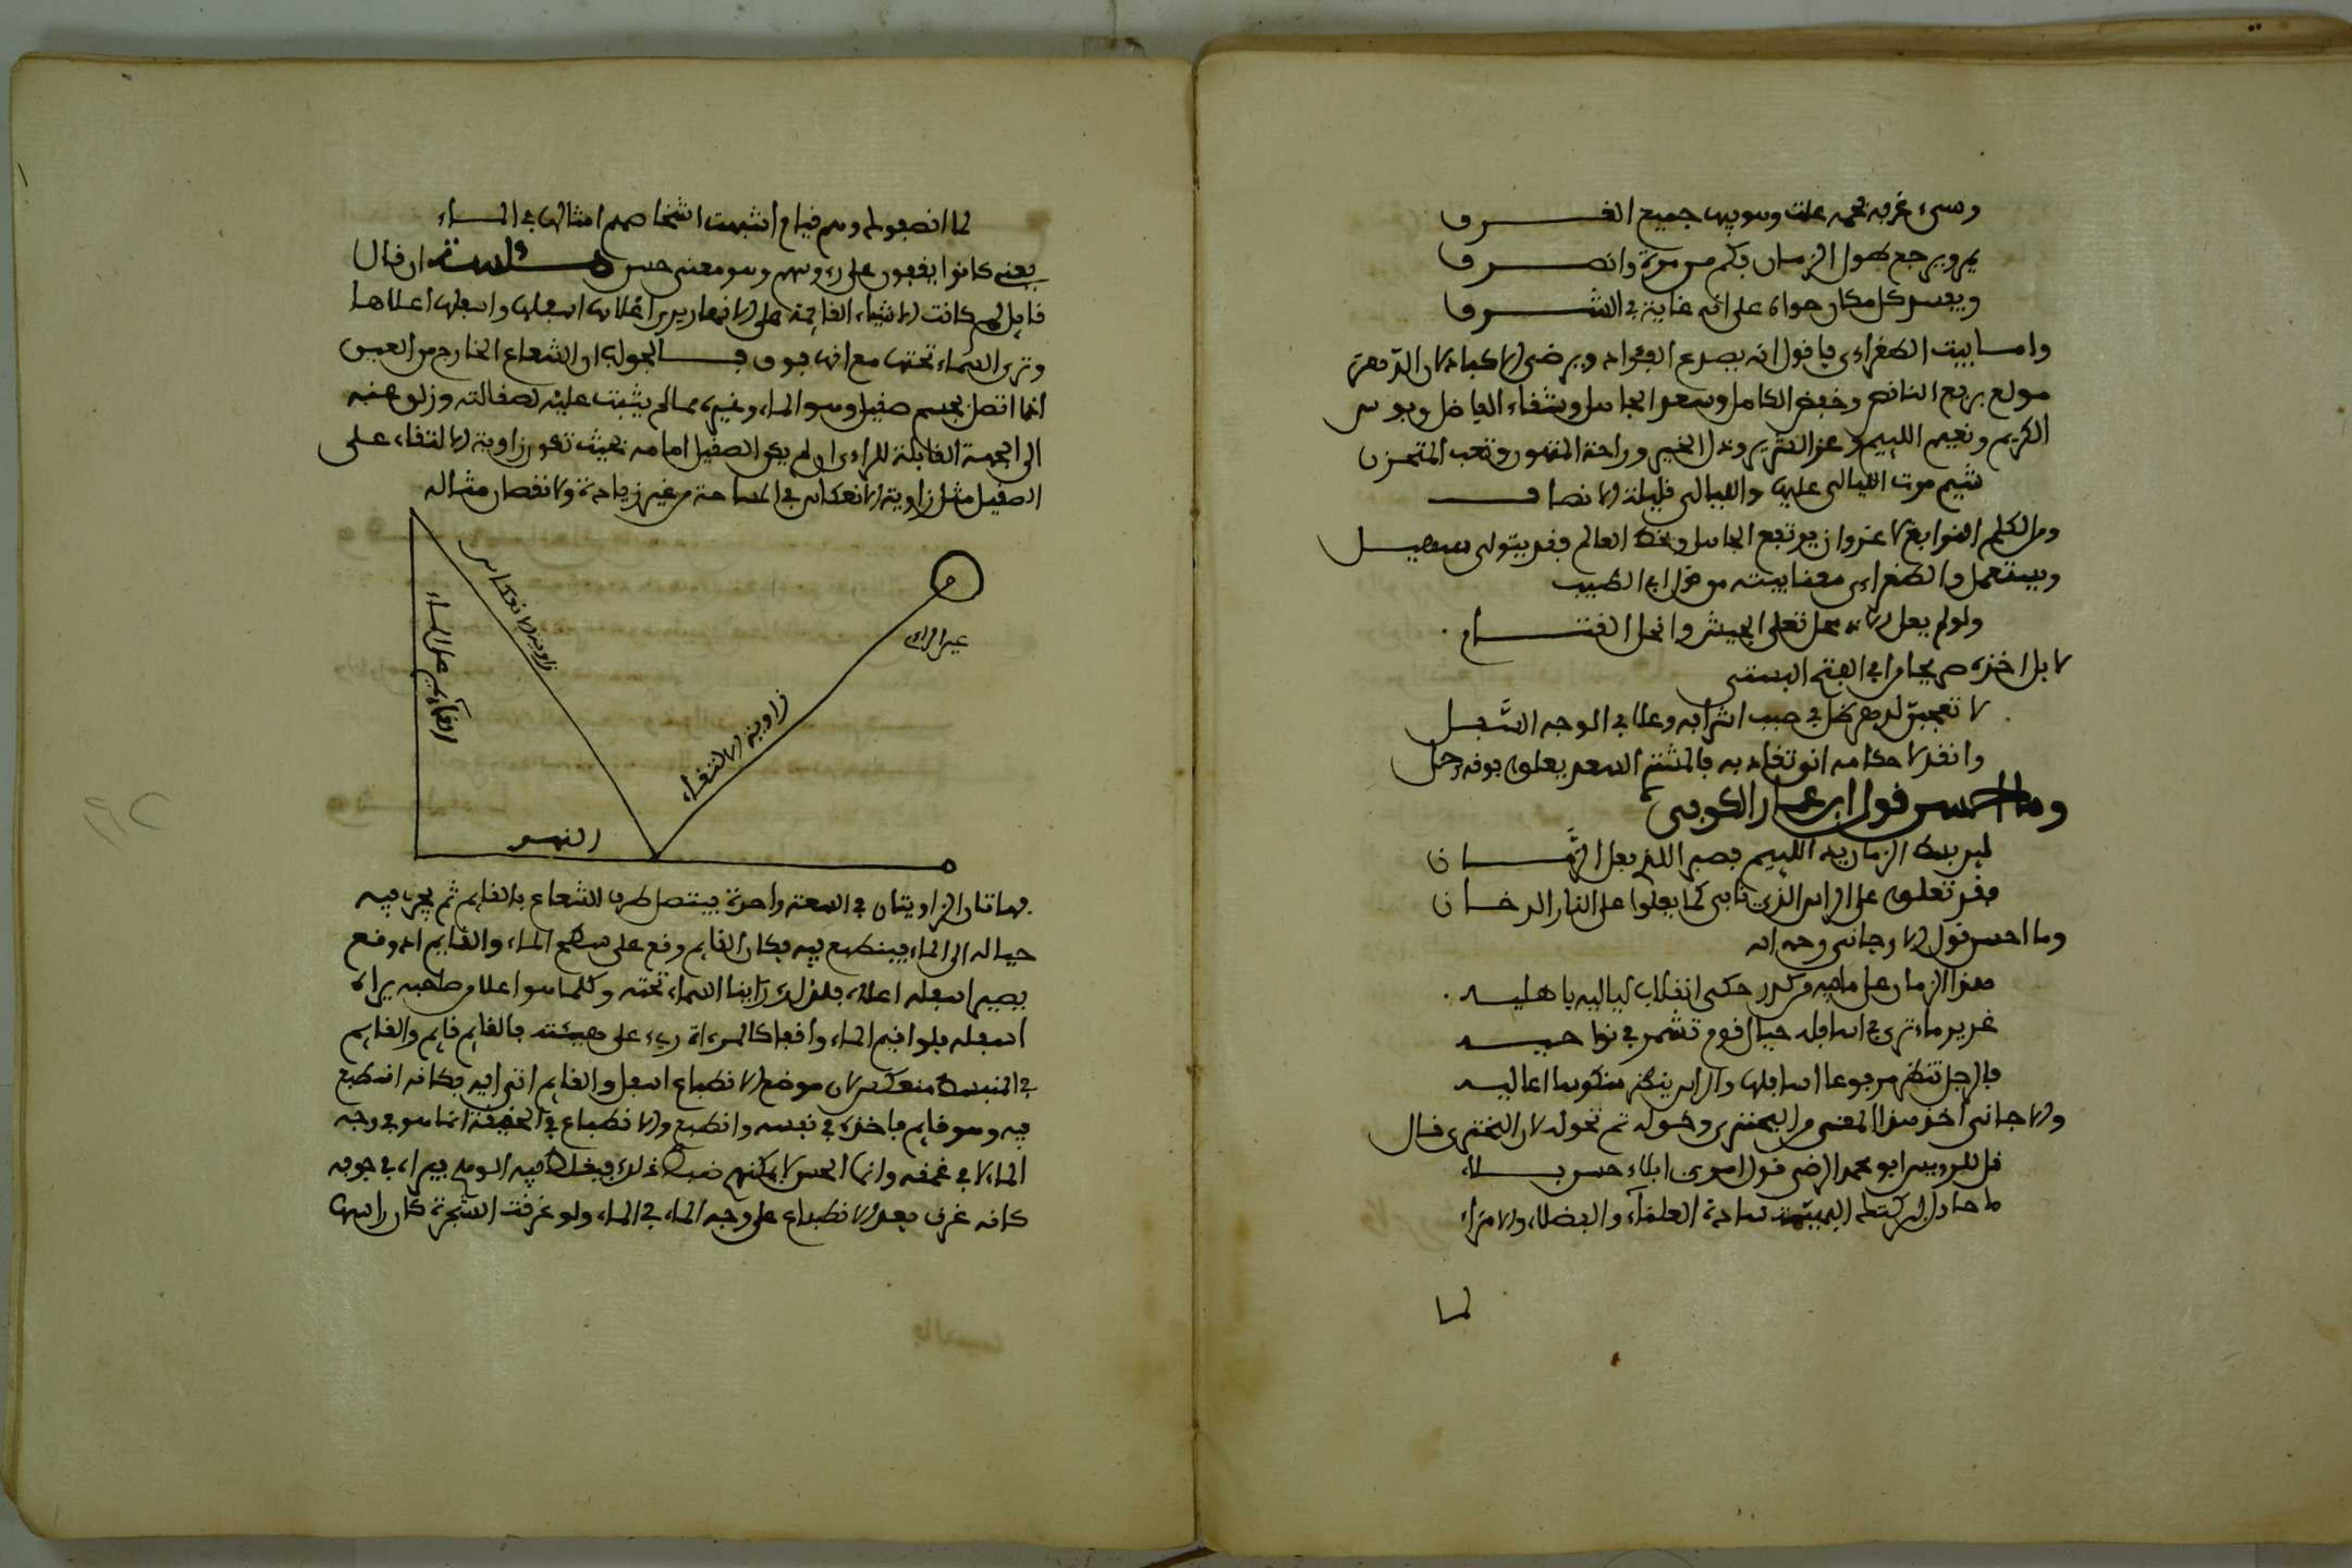 وسرى غربه نحمه علت وهو بها جميع الغرف
يمر ويرجع طول الزمان بكم من مرة وانصرف
ويعسر كل مكان حواه على انه غاية في الشرف
واما بيت الطغراءي فاقول انه يصدع الفواد ويرضى الاكباد لان الدهر
مولع برفع الناقص وخفض الكامل وسعد الجاهل وشقاء الفاضل وبوس
الكريم ونعيم اللييم وعز الشرير وذل الخير وراحة المتهور وتعب المتحرز
شيم مرت الليالي عليها والليالي قليلة الانصاف
ومن الكلم النوابغ لا غرو ان يرتفع الجاهل ويحط العالم فقد يتولى سهيل
ويستعمل والطغراءي معنا بيته من قول ابي الطيب
ولو لم يعل الا ذو محل تعلى الجيش وانحط القتام
لا بل اخذه صريحا من ابي الفتح البستي
لا تعجبن لدهر ظل في صبب اشرافه وعلا في اوجه السفل
وانقد لاحكامه اني تقاد به فالمشتري السعد يعلو فوقه زحل
وما احسن قول ابن عمار الكوفي
لين بسط الزمان يدي اللييم فصبرا للذي فعل الزمان
فقد تعلو على الراس الذنابى كما يعلوا على النار الدخان
وما احسن قول الارجاني رحمه الله
هذا الزمان على ما فيه من كدر حكى انقلاب لياليه باهليه
غدير ماء ترى في اسافله خيال قوم تمشوا في نواحيه
فالرجل تنظر مرفوعا اسافلها والراس ينظر منكوسا اعاليه
والارجاني اخذ هذا المعنى من البحتري وحوله ثم تحوله لان البحتري قال
قل للرييس ابو محمد الرضى قول امرى ابلاه حسن بلاء
ما حادث البركة الحسناء سادة العلماء والفضلاء والامراء
لما
لما انصفوا وهم قيام اشبهت اشخاصهم امثالها في الماء
يعني كانوا يقفون على رءوسهم وهو معنى حسن فلت ان قال
قايل لم كانت الاشياء القايمة على الانهار يرى اعلاها اسفلها واسفلها اعلاها
وترى السماء تحتها مع انها فوق فالجواب ان الشعاع الخارج من العين
اذا اتصل بجسم صقيل وهو الماء وغيره مما لم يثبت عليه لصقالته وزلق عنه
الى الجهة المقابلة للراءي ان لم يكن الصقيل امامه بحيث تكون زاوية الالتقاء على
الصقيل مثل زاوية الانعكاس في المساحة من غير زيادة ولا نقصان مثاله
عين الراءي
زاوية الانعكاس
القايم على الماء
زاوية الالتقاء
النهر
فهاتان الزاويتان في السعة واحدة فيتصل طرف الشعاع بالقايم ثم يجري فيه
خياله الى الماء فينطبع فيه فكان القايم وقع على سطح الماء والقايم اذا وقع
يصير اسفله اعلاه فلذلك راينا السماء تحته وكلما هو اعلا من صاحبه يراه
اسفله فلو اقيم الماء واقفا كالمرءاة رءي على هيئته فالقايم قايم والقايم
في المنبسط منعكس لان موضع الانطباع اسفل والقايم انتهى اليه فكانه انطبع
فيه وهو قايم فاخذه في نفسه وانطبع والانطباع في الحقيقة انما هو في وجه
الماء لا في عمقه وانما الحس لا يمكنه ضبط ذلك فيغلط فيه الوهم فيراه في جوفه
كانه غرق بعد الانطباع على وجه الماء في الماء ولو غرقت الشجرة كان راسها